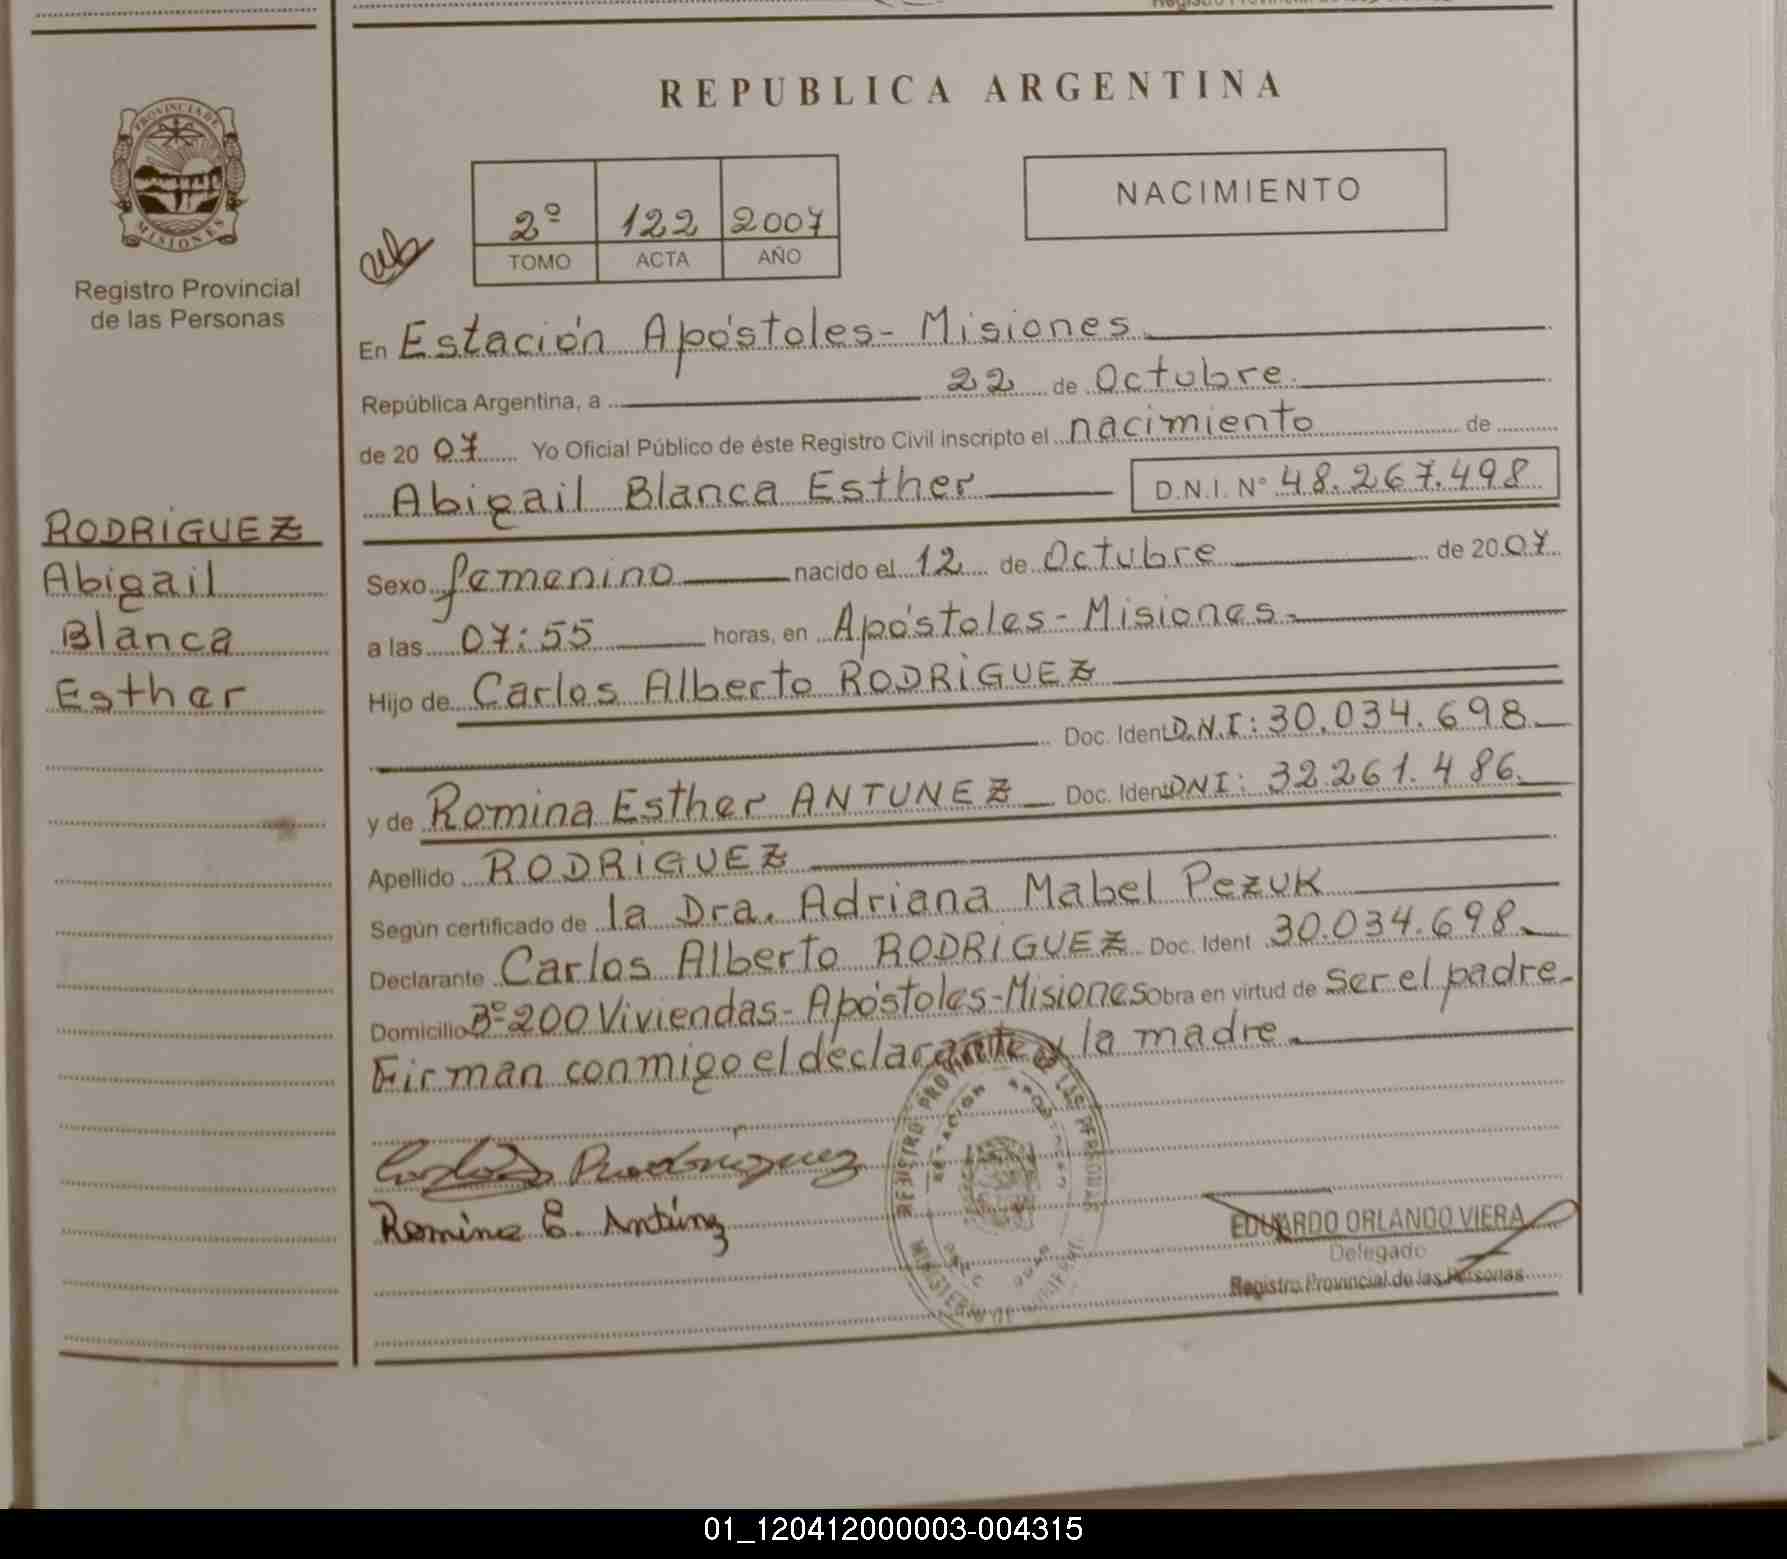 REPUBLICA ARGENTINA
PROVINCIA DE
MISIONES
Registro Provincial
de las Personas
RODRIGUEZ
Abigail
Blanca
Esther
2º 122 2007
TOMO ACTA AÑO
NACIMIENTO
En Estación Apóstoles - Misiones
República Argentina, a 22 de Octubre
de 2007 Yo Oficial Público de éste Registro Civil inscripto el nacimiento de
Abigail Blanca Esther D.N.I. Nº 48.267.498
Sexo femenino nacido el 12 de Octubre de 2007
a las 07:55 horas, en Apóstoles - Misiones
Hijo de Carlos Alberto RODRIGUEZ
Doc. Ident D.N.I: 30.034.698
y de Romina Esther ANTUNEZ Doc. Ident DNI: 32.261.486
Apellido RODRIGUEZ
Según certificado de la Dra. Adriana Mabel Pezuk
Declarante Carlos Alberto RODRIGUEZ Doc. Ident 30.034.698
Domicilio Bº 200 Viviendas - Apóstoles - Misiones Obra en virtud de ser el padre.
Firman conmigo el declarante y la madre.
Carlos Rodriguez
Romina E. Antúnez
EDUARDO ORLANDO VIERA
Delegado
Registro Provincial de las Personas
01_120412000003-004315